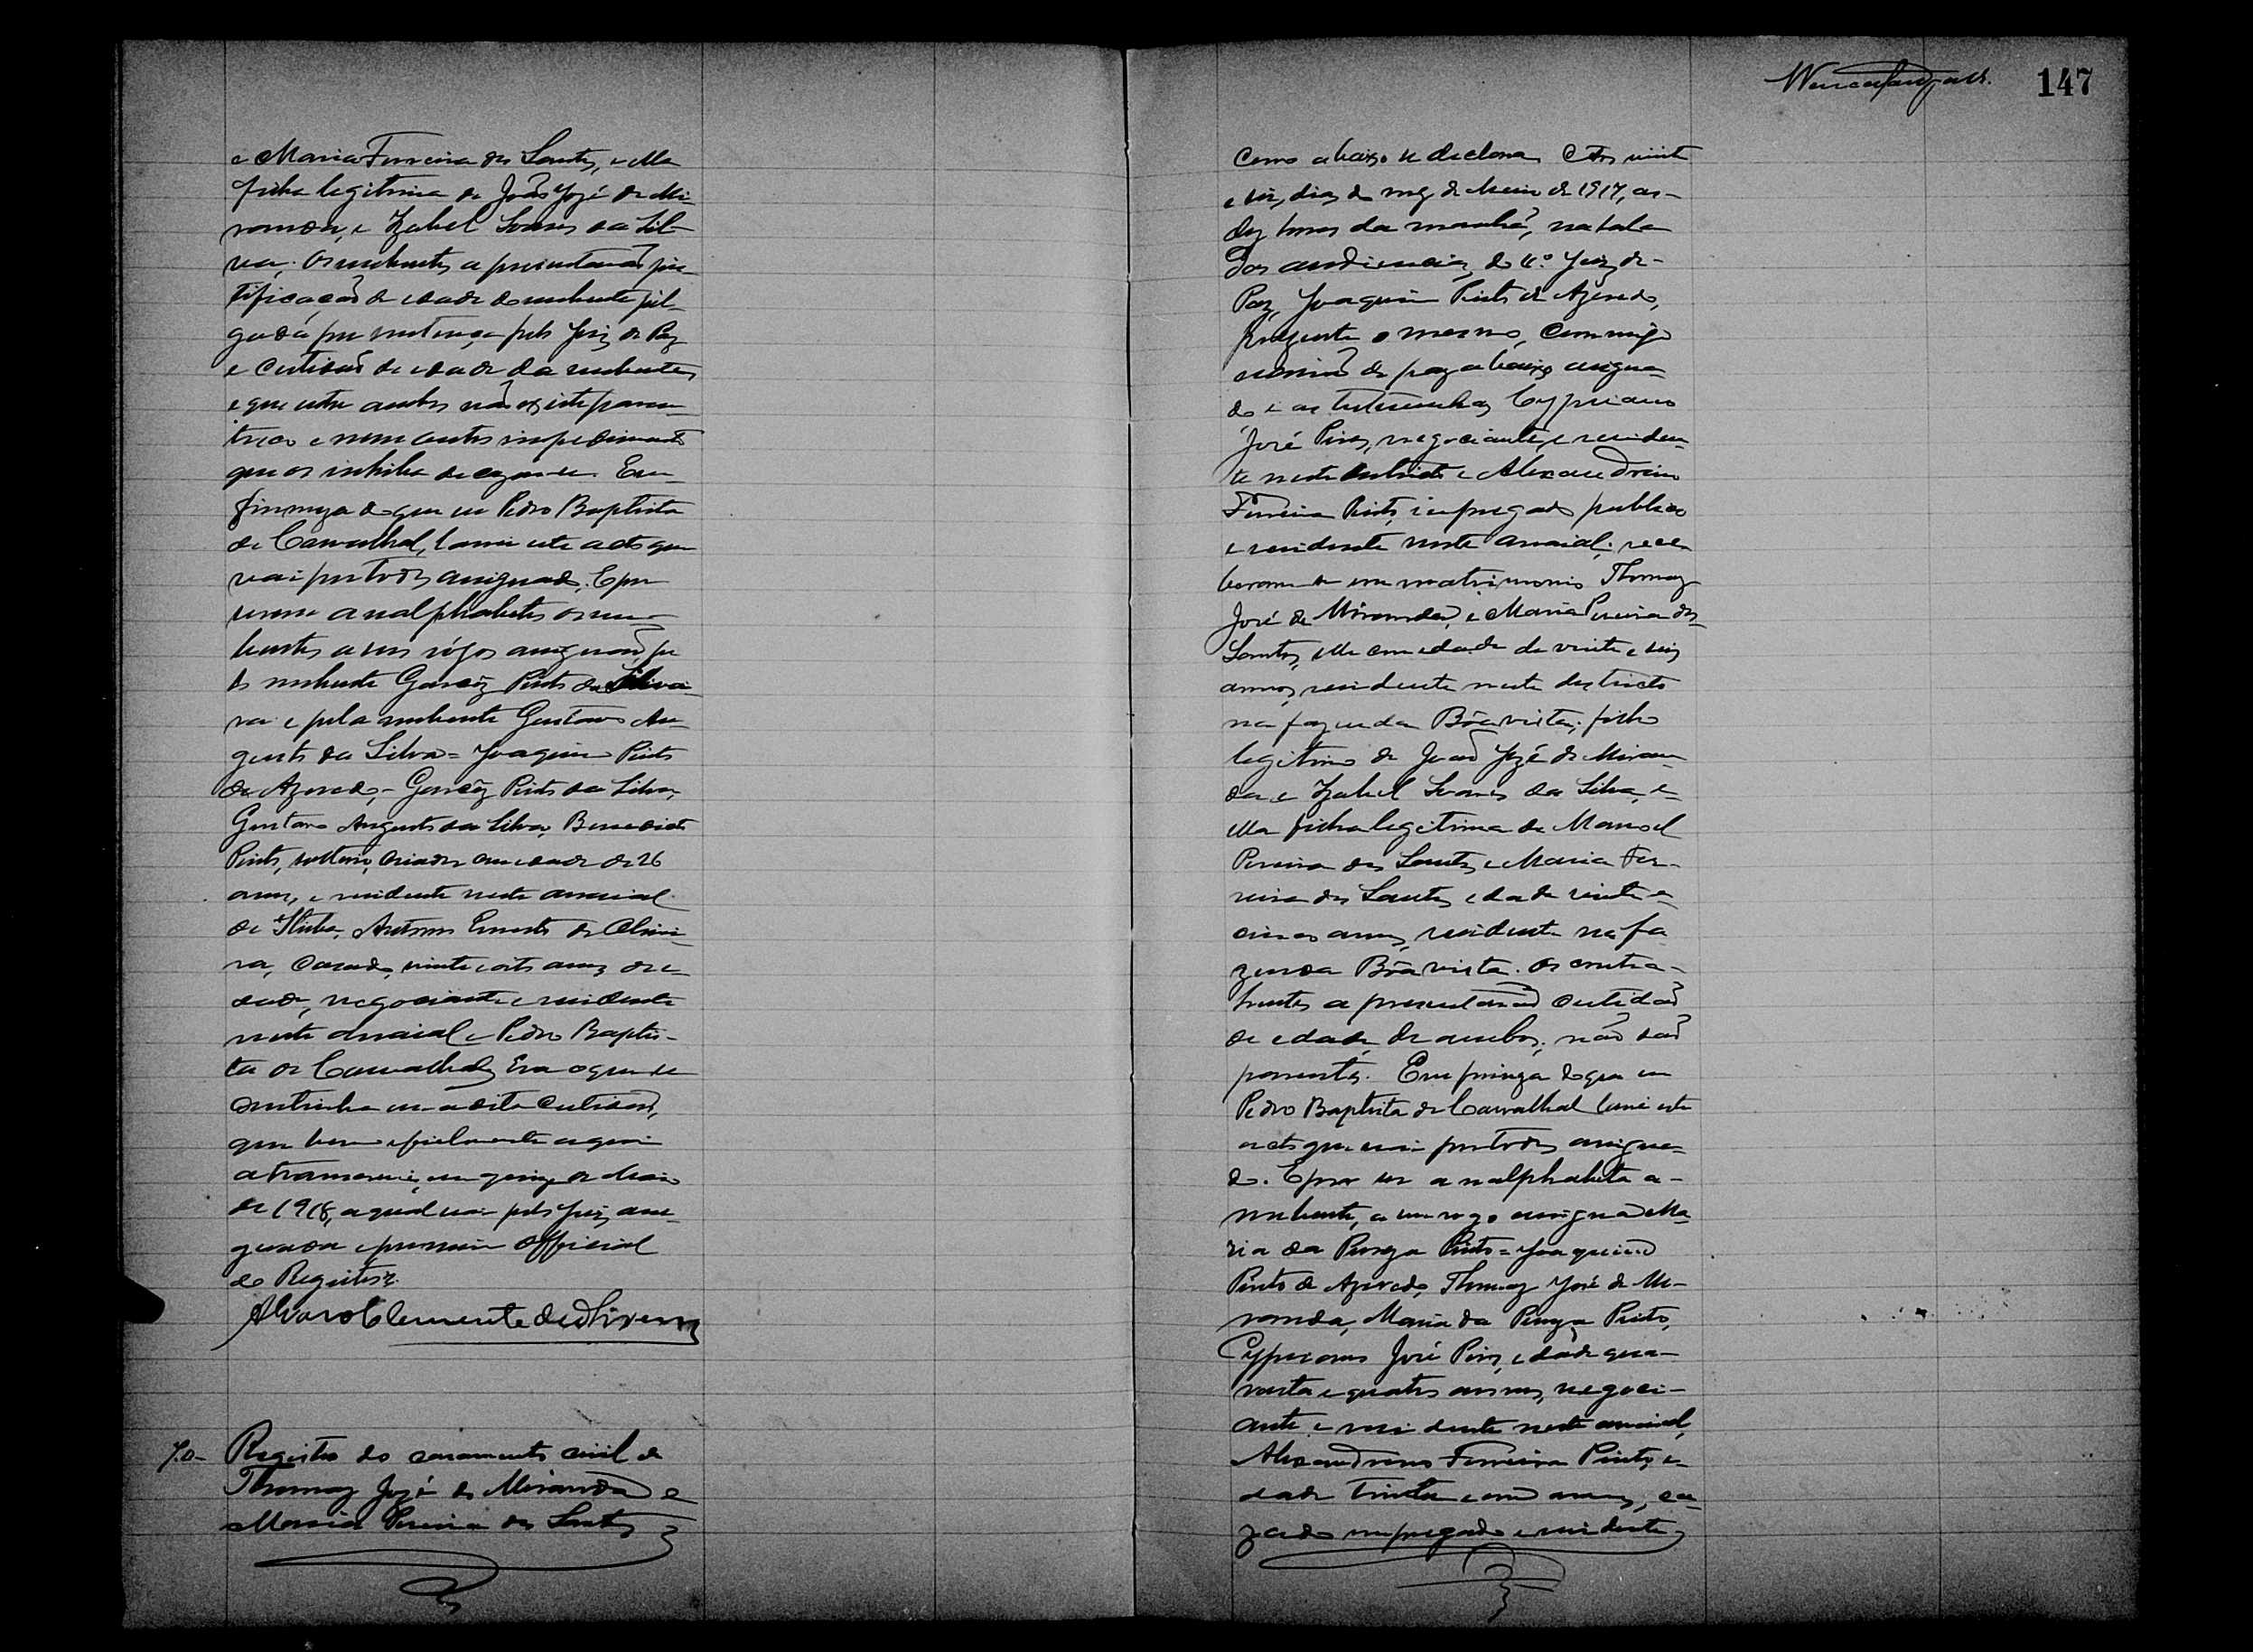 e Maria Ferreira dos Santos, e ella
filha legitima de João José de Mi-
randa, e Izabel Soares da Sil-
va. Os nubentes apresentarão jus-
tificação de edade do nubente jul-
gada por sentença pelo Juiz de Paz
e certidão de edade da nubente,
e que entre ambos não existe paren-
tesco e nem outro impedimento
que os inhiba de cazar-se. Em
firmeza do que eu Pedro Baptista
de Carvalhal, lavrei este acto que
vai por todos assignado. E por
serem analphabetos os nu-
bentes a seus rógos assignarão pe
lo nubente Garcêz Pinto da Silva
va e pela nubente Gustavo Au-
gusto da Silva = Joaquim Pinto
de Azevedo, - Garcêz Pinto da Silva,
Gustavo Augusto da Silva, Benedicto
Pinto, solteiro, criador com edade de 26
annos, e residente neste arraial
de Itiuba, Antonio Ernesto de Olivei-
ra, casado, vinte e oito annos de e-
dade, negociante e residente
neste arraial e Pedro Baptis-
ta de Carvalhal. Era o que se
continha em a dita certidão,
que bem e fielmente aqui
a transcrevi, em quinze de Maio
de 1918, a qual vai pelo Juiz assi-
gnada e por mim Official
do Registro.
Alvaro Clemente de Oliveira
70- Registro do casamento civil de
Thomaz José de Miranda e
Maria Pereira dos Santos
147
Como abaixo se declara. Aos vinte
e seis dias do mez de Maio de 1917, as-
dez horas da manhã, na sala
das audiencias do 1º Juiz de-
Paz, Joaquim Pinto de Azevedo,
prezente o mesmo, commigo
escrivão de paz abaixo assigna-
do e as testemunhas Cypriano
José Pires, negociante, e residen-
te neste districto e Alexandrino
Ferreira Pinto, empregado publico
e residente neste arraial; rece-
beram-se em matrimonio Thomaz
José de Miranda, e Maria Pereira dos
Santos, elle com edade de vinte e seis
annos, residente neste districto
na fazenda Bôa vista, filho
legitimo de João José de Miran-
da e Izabel Soares da Silva, e-
ella filha legitima de Manoel
Pereira dos Santos e Maria Fer-
reira dos Santos, edade vinte e
cinco annos, residente na fa
zenda Bôa vista. Os contra-
hentes apresentarão certidão
de edade de ambos; não são
parentes. Em firmeza do que eu
Pedro Baptista de Carvalhal lavrei este
acto que vai por todos assigna-
do. E por ser analphabeta a-
nubente, a seu rogo assigna Ma-
ria da Pureza Pinto = Joaquim
Pinto de Azevedo, Thomaz José de Mi-
randa, Maria da Pureza Pinto,
Cypriano José Pires, edade qua-
renta e quatro annos, negoci-
ante e residente neste arraial,
Alexandrino Ferreira Pinto, e-
dade trinta e um annos, ca-
zado empregado e residente